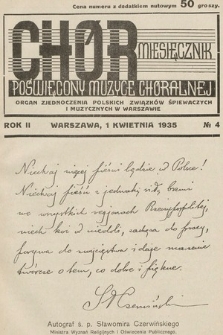 Cena numeru z dodatkiem nutowym 50 groszy.
CHÓR
MIESIĘCZNIK
POŚWIĘCONY MUZYCE CHÓRALNEJ
ORGAN ZJEDNOCZENIA POLSKICH ZWIĄZKÓW ŚPIEWACZYCH
I MUZYCZNYCH W WARSZAWIE
ROK II WARSZAWA, 1 KWIETNIA 1935 № 4
Niechaj więcej pieśni będzie w Polsce!
Niechaj pieśń z jednaką siłą brzmi
we wszystkich Rzeczypospolitej,
niech koi w niedoli, zachęca do pracy,
porywa do zwycięstwa i daje marzenie
twórcze o tem, co dobre i piękne.
Autograf ś. p. Sławomira Czerwińskiego
Ministra Wyznań Religijnych i Oświecenia Publicznego.